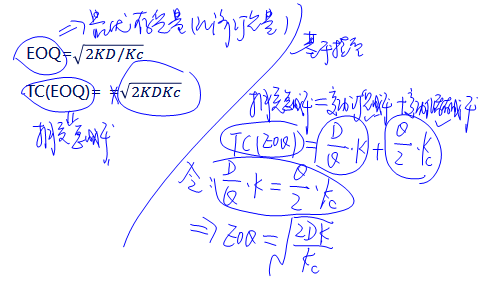 => 最优存货量(经济订货量)
EOQ=√2KD/Kc
TC(EOQ)= =√2KDKc
相关总成本
基于推理
相关总成本=变动订货成本+变动储存成本
TC(EOQ)=D/Q·K+Q/2·Kc
令:D/Q·K=Q/2·Kc
=> EOQ=√2DK/Kc